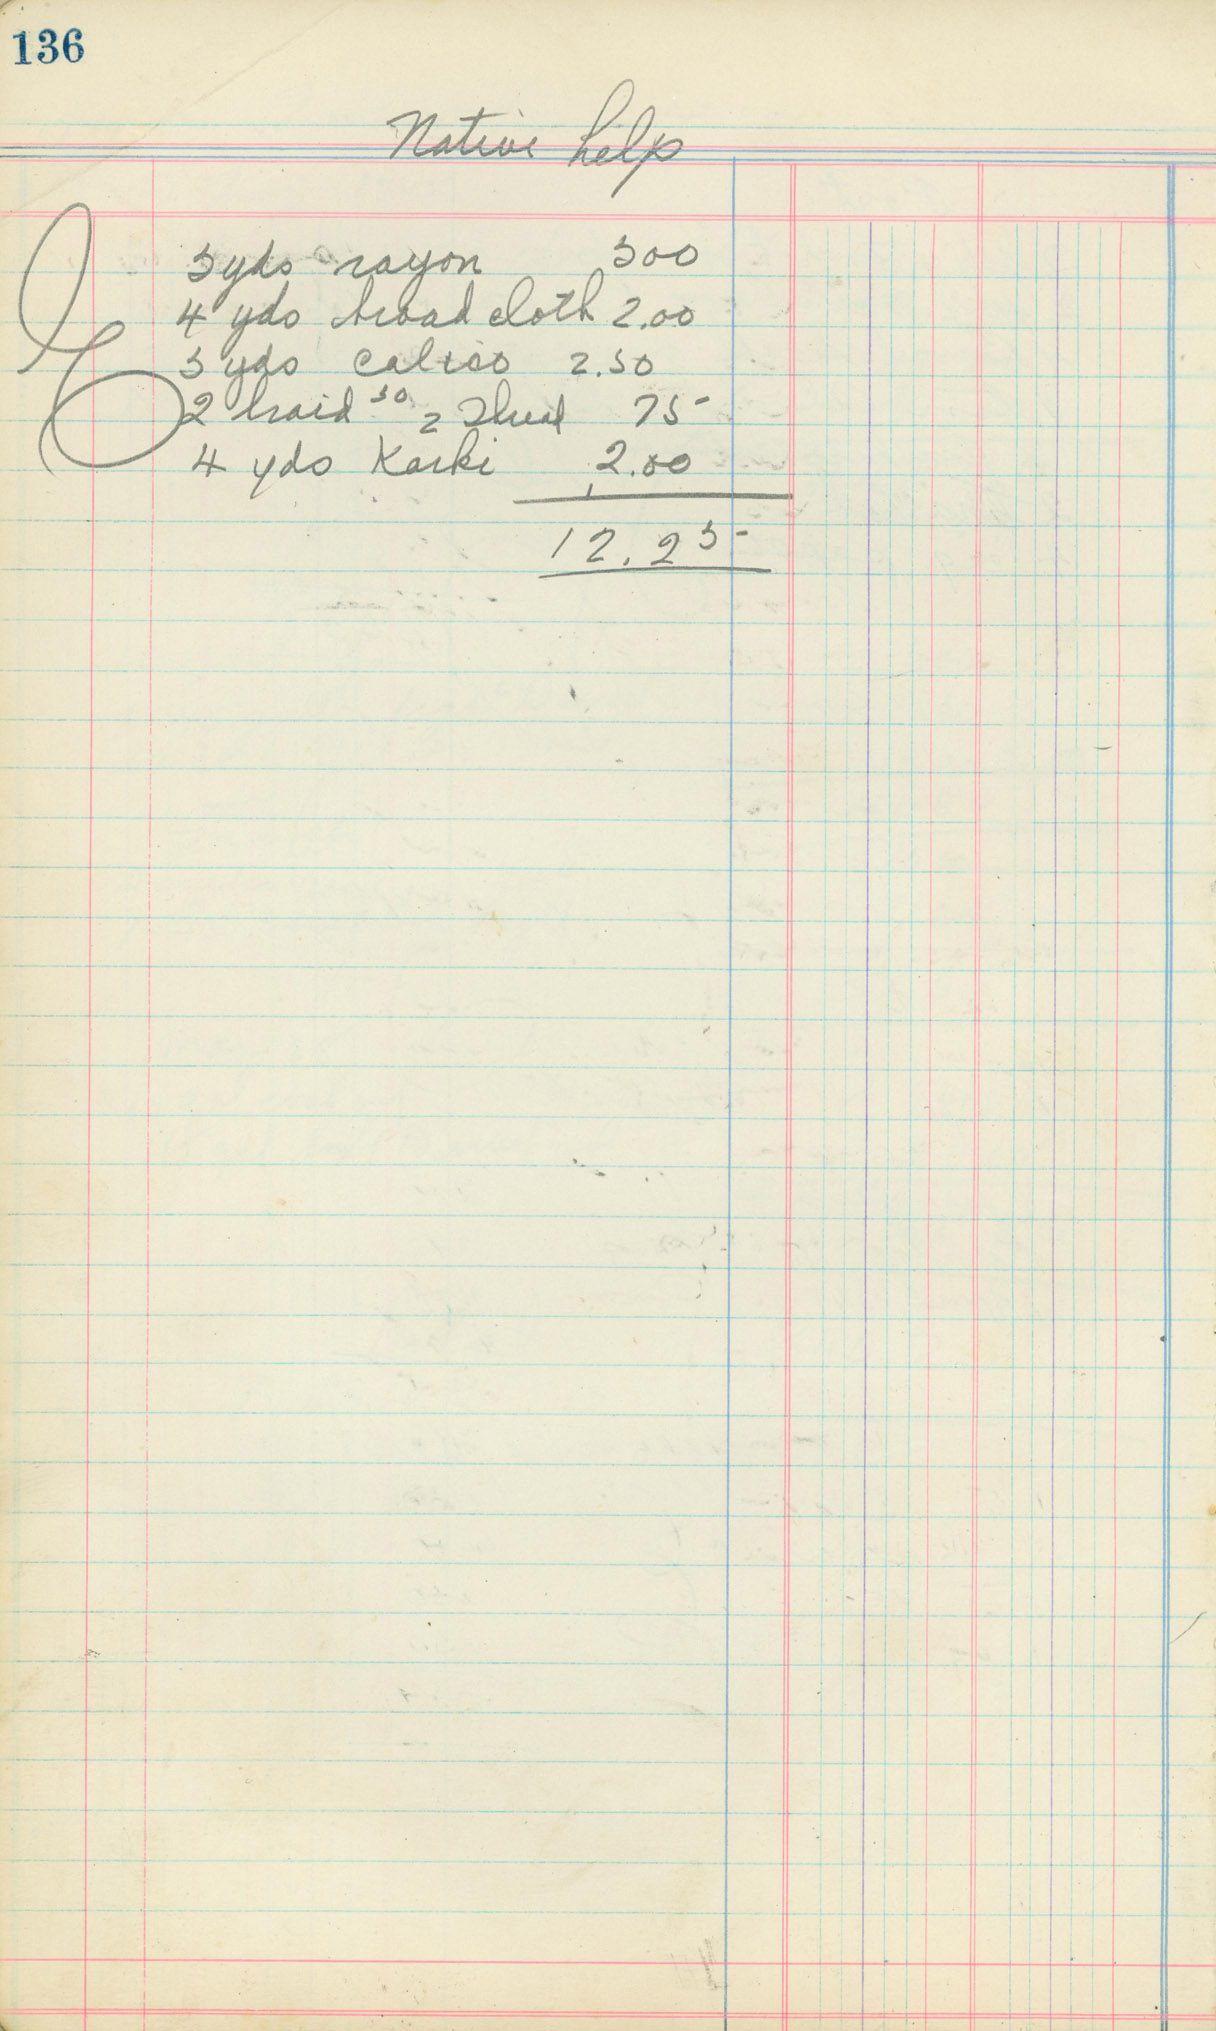 136
Native help
5 yds rayon 500
4 yds broad cloth 2.00
5 yds calico 2.50
2 braid 50 2 Thread 75
4 yds Karki 2.00
12.25